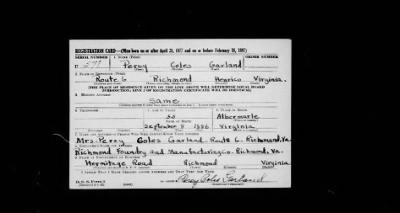 REGISTRATION CARD—(Men born on or after April 28, 1877 and on or before February 16, 1897)
SERIAL NUMBER 1. NAME (Print) ORDER NUMBER
Perry Coles Garland
2. PLACE OF RESIDENCE (Print)
Route 6 Richmond Henrico Virginia.
[THE PLACE OF RESIDENCE GIVEN ON THE LINE ABOVE WILL DETERMINE LOCAL BOARD
JURISDICTION; LINE 2 OF REGISTRATION CERTIFICATE WILL BE IDENTICAL]
3. MAILING ADDRESS
Same
4. TELEPHONE
55 Albermarle
DATE OF BIRTH
September 1886 Virginia
Mrs. Perry Coles Garland Route 6. Richmond, Va.
Richmond Foundry and Manufacturing Co. Richmond, Va.
Hermitage Road Richmond Virginia
I AFFIRM THAT I HAVE VERIFIED ABOVE ANSWERS AND THAT THEY ARE TRUE.
D. S. S. Form 1
Perry Coles Garland